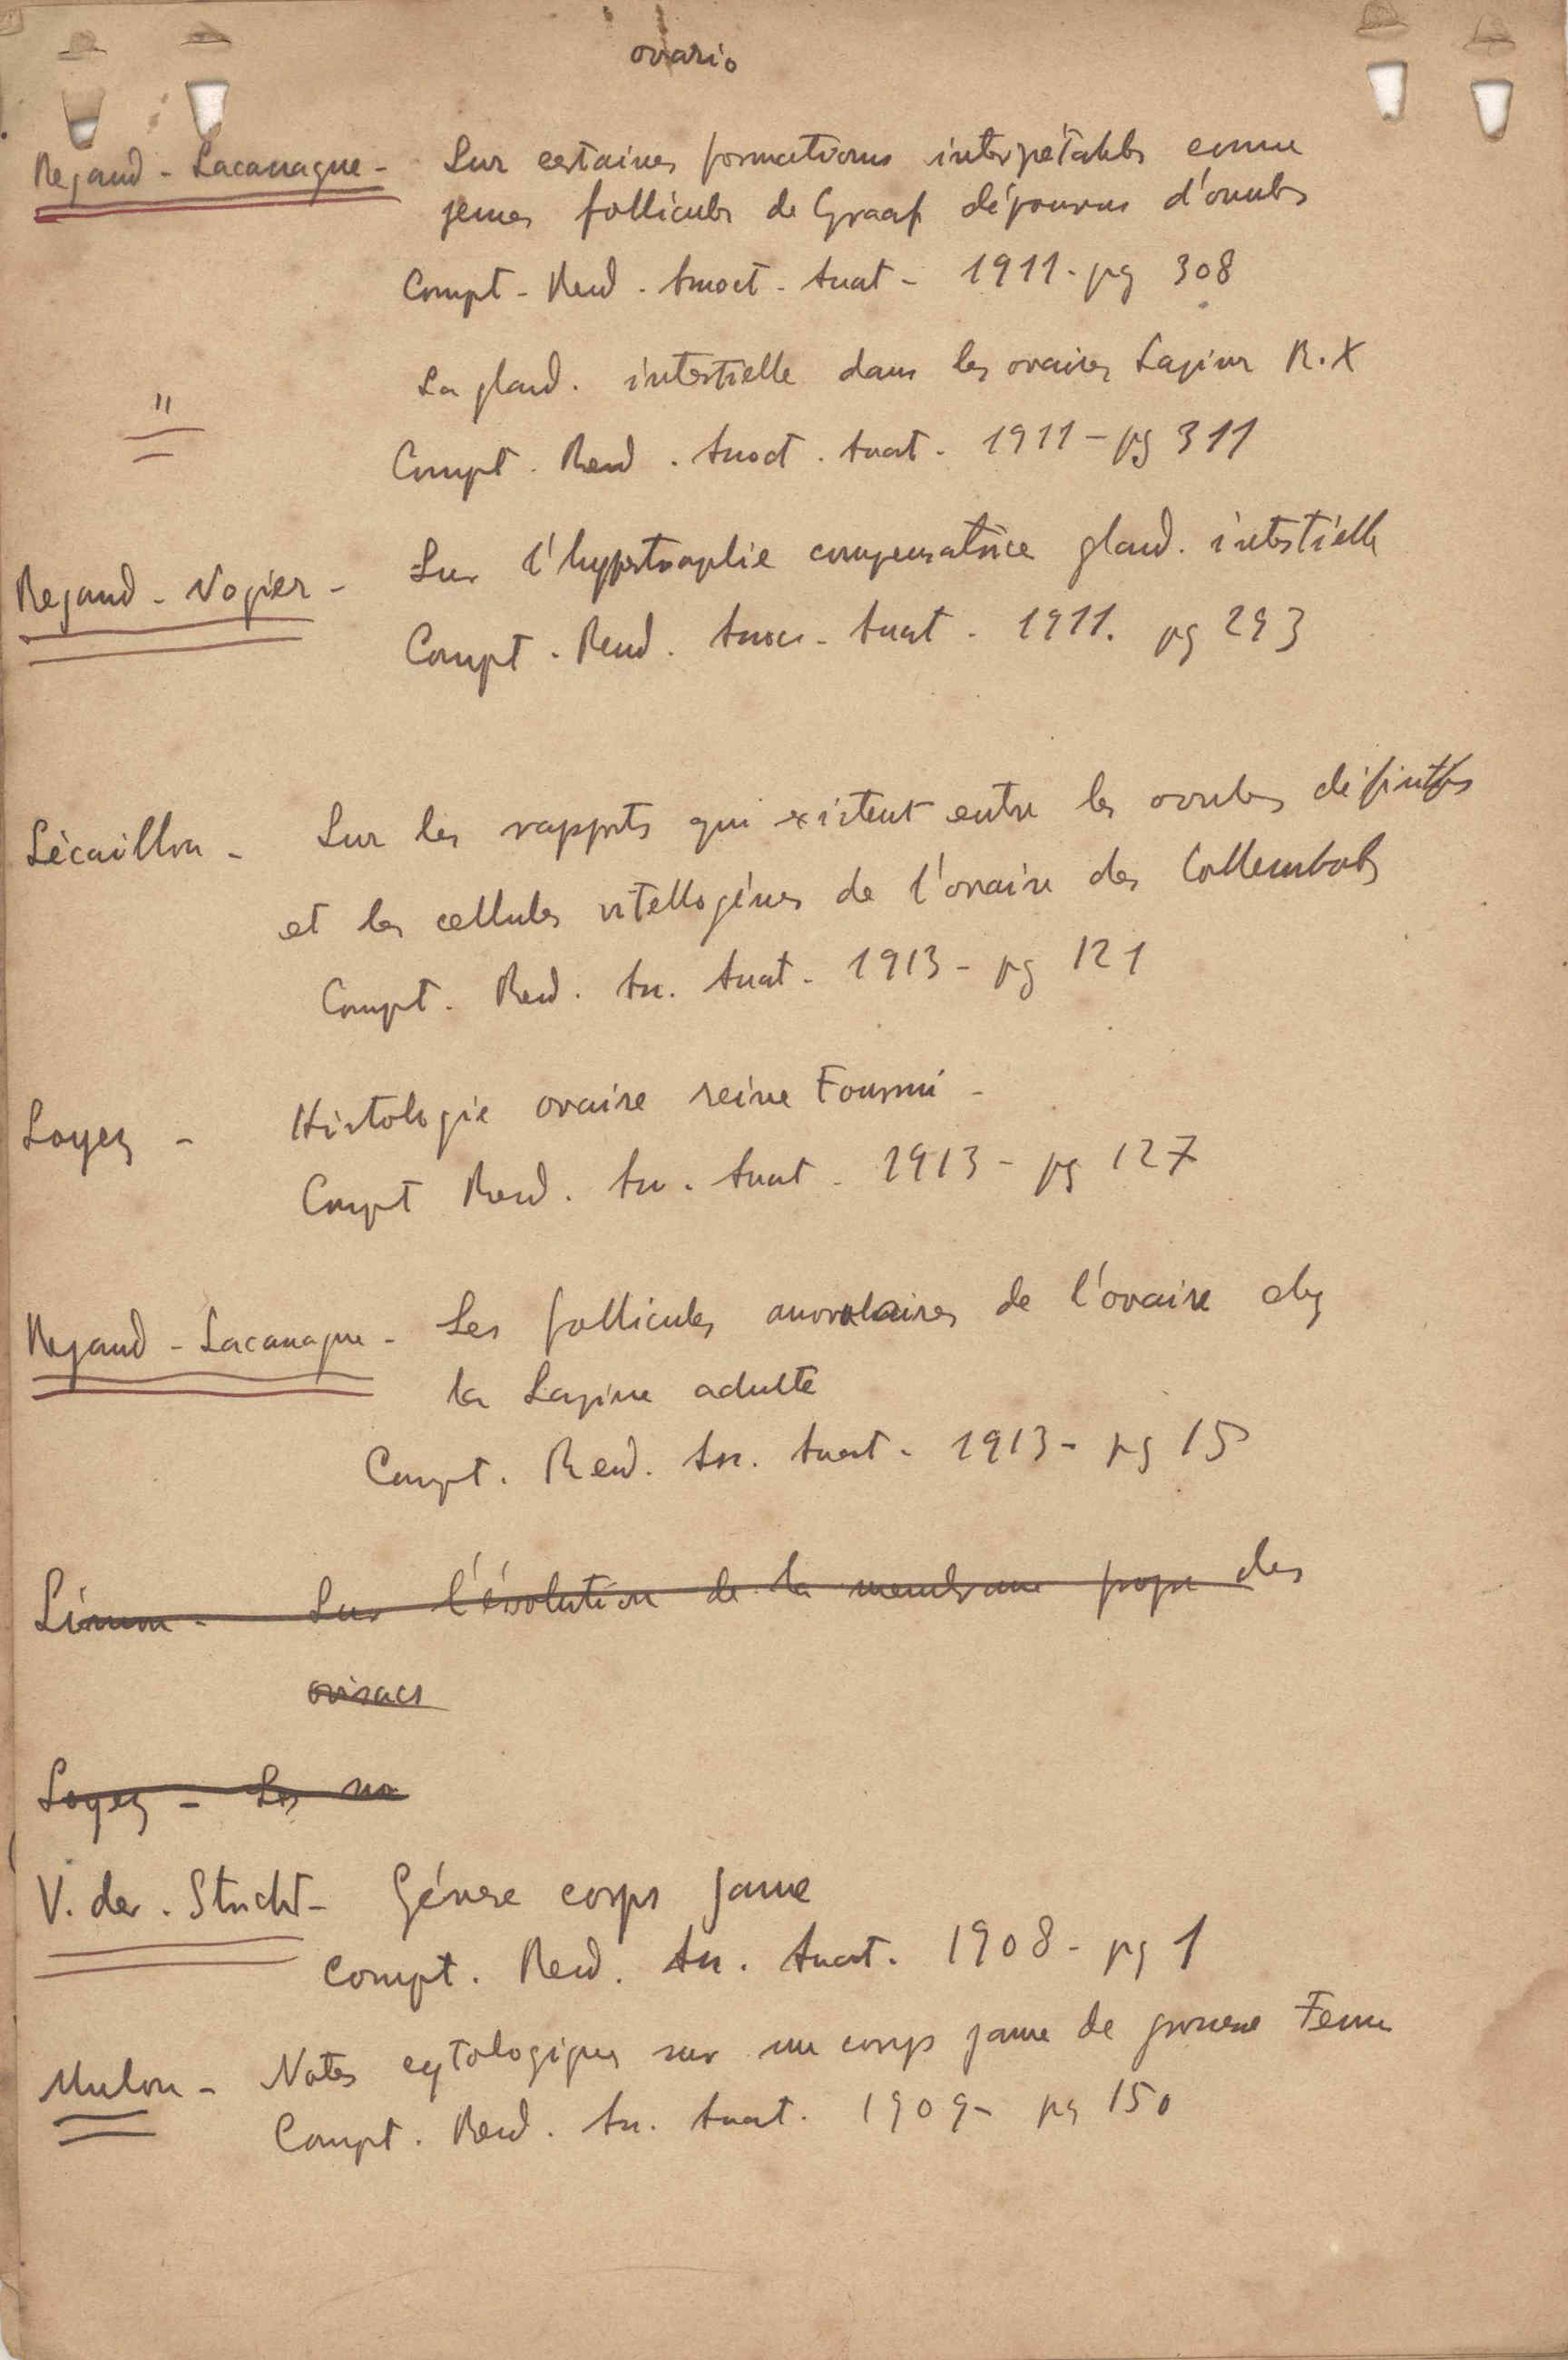 ovario
Regaud - Lacassagne - Sur certaines formations interpétables comme
jeunes follicules de Graaf dépourvus d'ovules
Compt - Rend . Assoct - Anat - 1911 - pg 308
" La gland. interstielle dans les ovaires Lapine R.X
Compt . Rend . Assoct . Anat - 1911 - pg 311
Regaud - Nogier - Sur l'hypertrophie compensatrice gland. interstielle
Compt . Rend . Assoc - Anat - 1911. pg 293
Lécaillon - Sur les rapports qui existent entre les ovules définitifs
et les cellules vitellogènes de l'ovaire des Collemboles
Compt . Rend . As. Anat - 1913 - pg 121
Loyez - Histologie ovaire reine Fourmi -
Compt Rend . As . Anat - 1913 - pg 127
Regaud - Lacassagne - Les follicules anovulaires de l'ovaire chez
la Lapine adulte
Compt . Rend . As. Anat - 1913 - pg 15
Limon - Sur l'évolution de la membrane propre des
ovisacs
Loyez - Les no
V. der . Stricht - Génese corps jaune
Compt . Rend . As . Anat . 1908 - pg 1
Mulon - Notes cytologiques sur un corps jaune de grosesse Femme
Compt . Rend . As . Anat . 1909 - pg 150